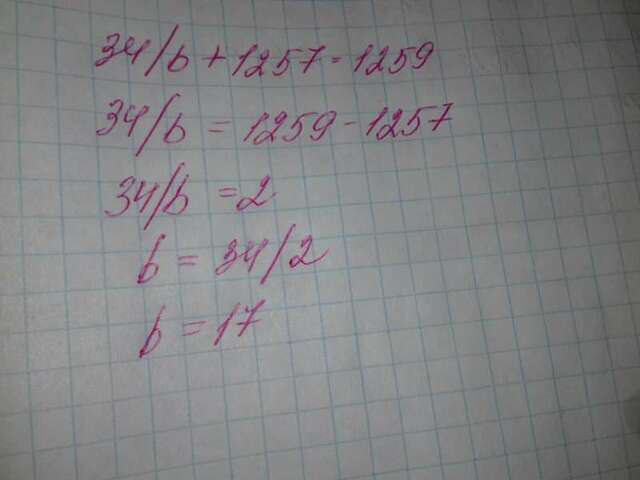 34/b + 1257 = 1259
34/b = 1259 - 1257
34/b = 2
b = 34/2
b = 17